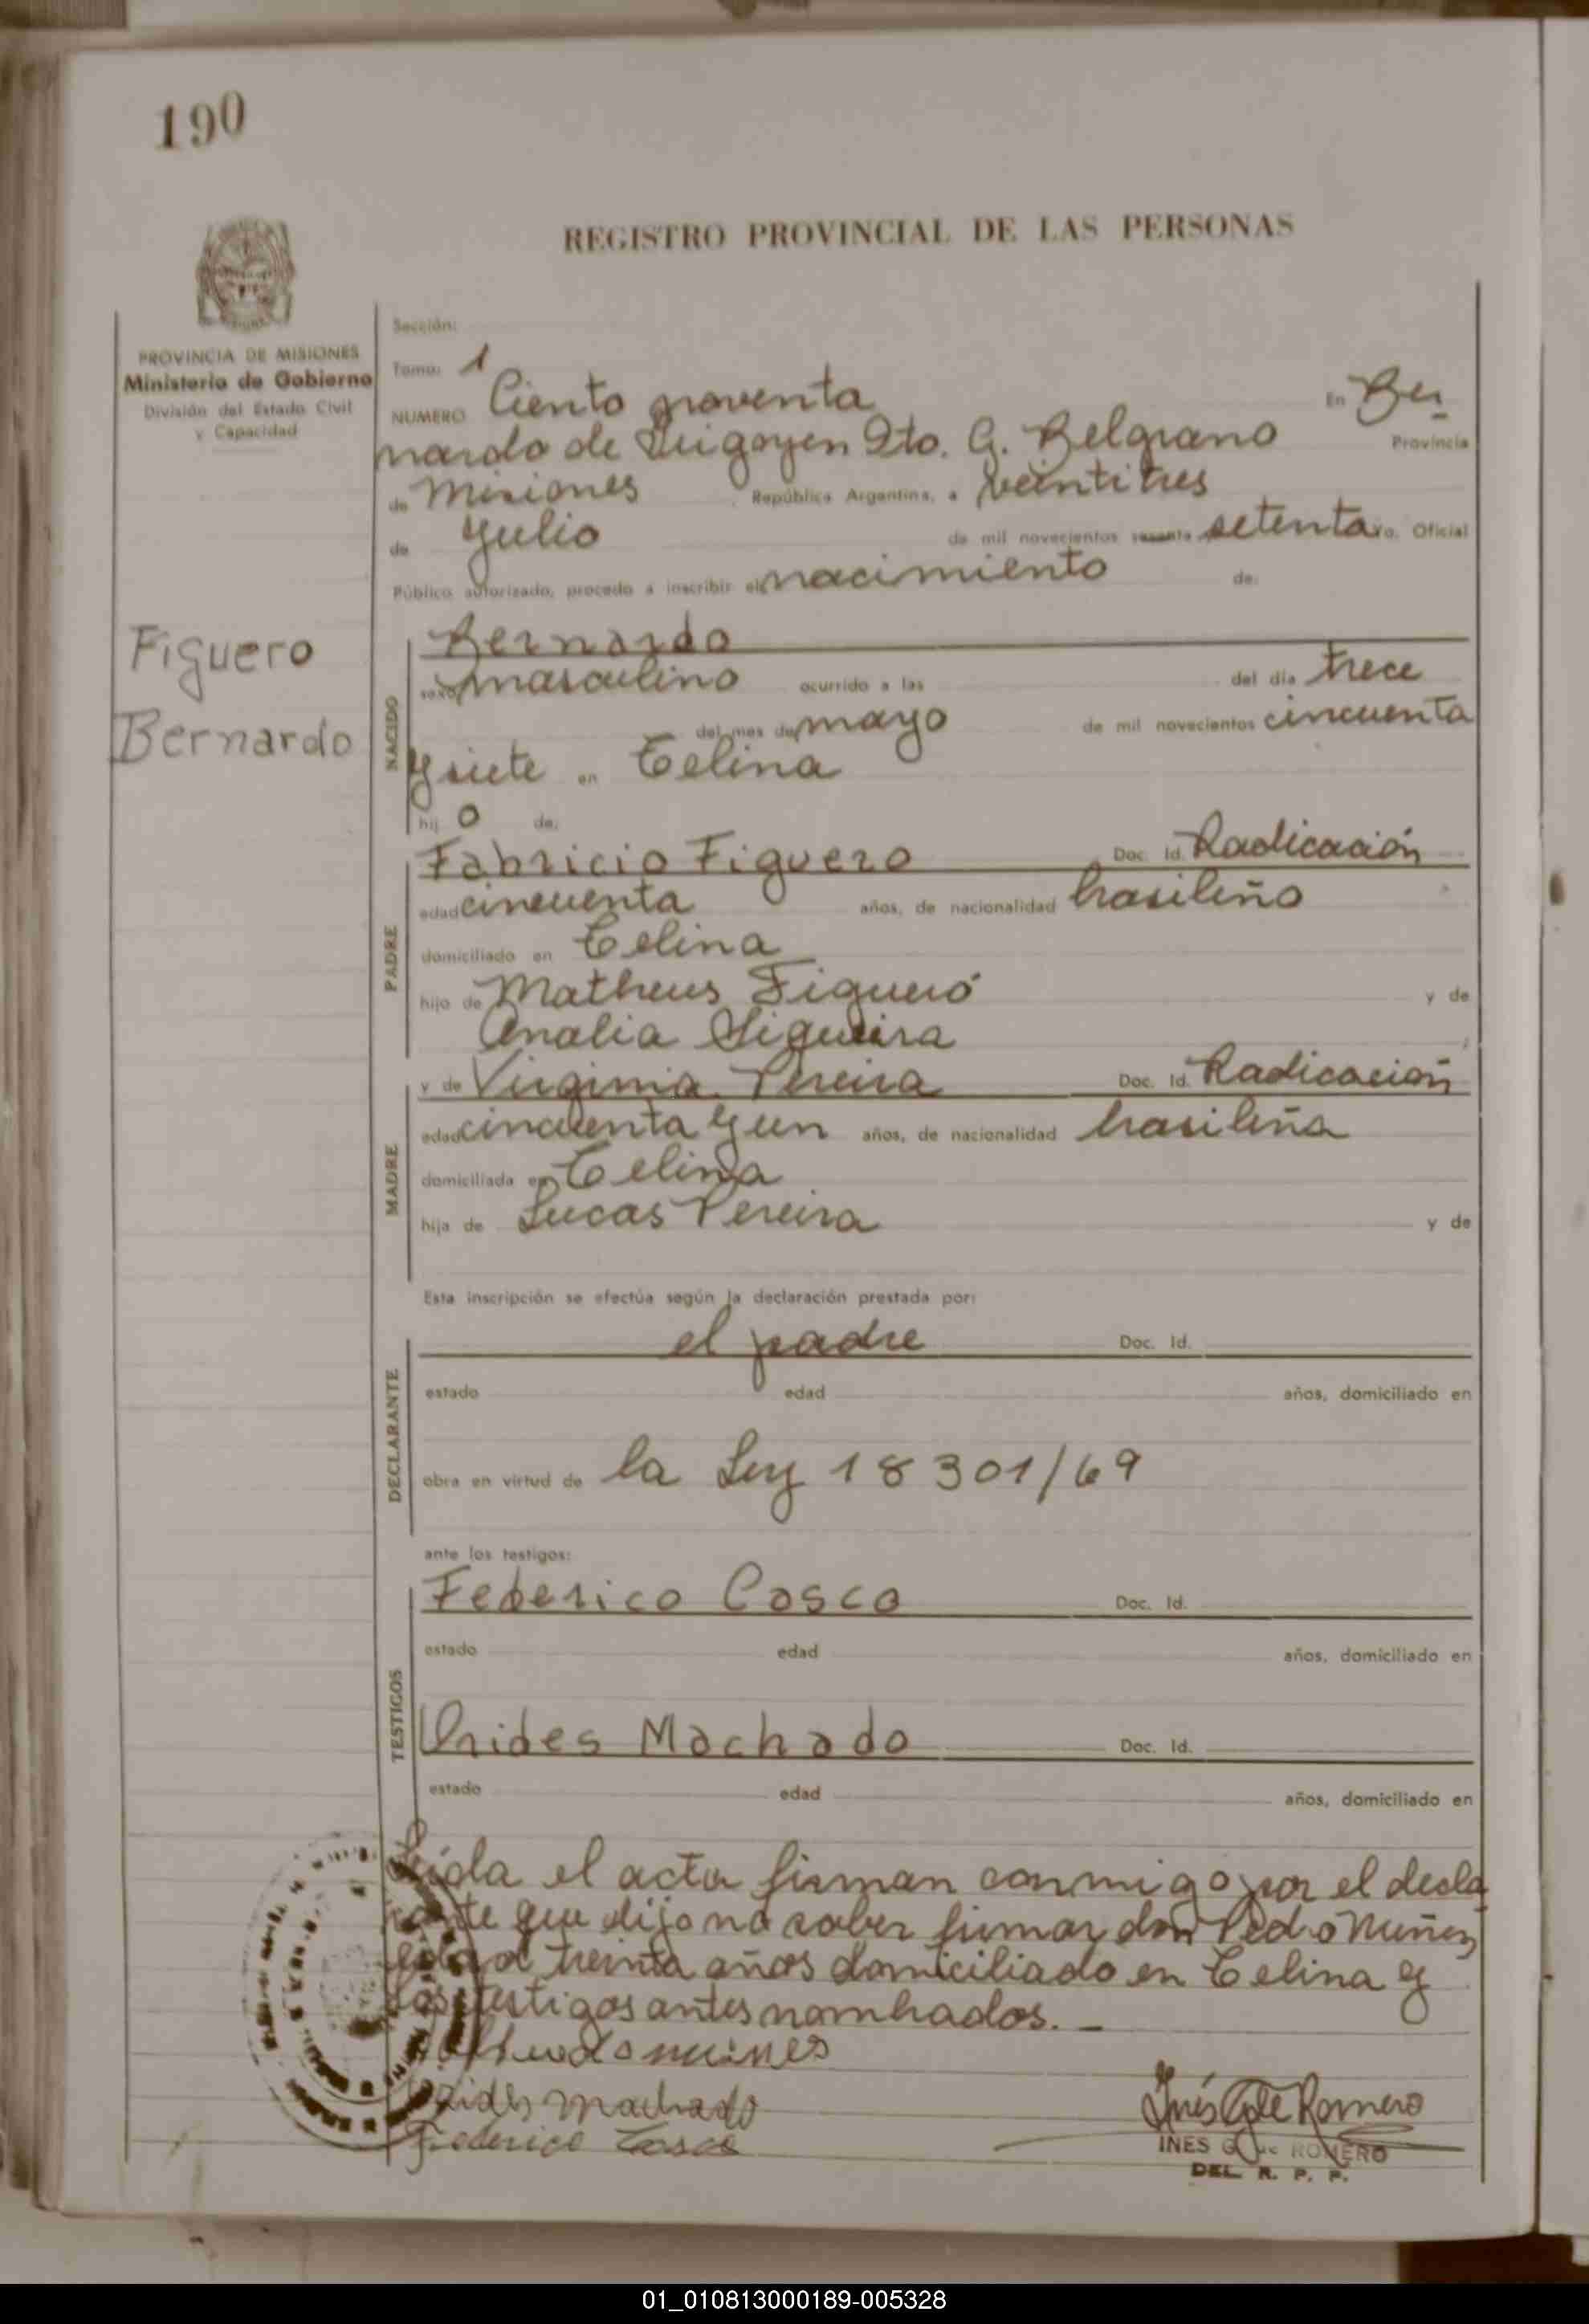 190
REGISTRO PROVINCIAL DE LAS PERSONAS
PROVINCIA DE MISIONES
Ministerio de Gobierno
División del Estado Civil
y Capacidad
Sección:
Tomo: 1
NUMERO Ciento noventa En Ber
nardo de Irigoyen Dto. G. Belgrano Provincia
de Misiones República Argentina, a veintitres
de Julio de mil novecientos sesenta setenta Yo. Oficial
Público autorizado, procedo a inscribir el nacimiento de:
Figuero
Bernardo
NACIDO
Bernardo
sexo masculino ocurrido a las del día trece
del mes de mayo de mil novecientos cincuenta
y siete en Celina
hij o de:
PADRE
Fabricio Figuero Doc. Id. Radicación
edad cincuenta años, de nacionalidad brasileño
domiciliado en Celina
hijo de Matheus Figueró y de
Analia Sigueira
MADRE
y de Virginia Pereira Doc. Id. Radicación
edad cincuenta y un años, de nacionalidad brasileña
domiciliada en Celina
hija de Lucas Pereira y de
Esta inscripción se efectúa según la declaración prestada por:
DECLARANTE
el padre Doc. Id.
estado edad años, domiciliado en
obra en virtud de la Ley 18301/69
ante los testigos:
TESTIGOS
Federico Casco Doc. Id.
estado edad años, domiciliado en
Orides Machado Doc. Id.
estado edad años, domiciliado en
Leida el acta firman conmigo por el decla
rante que dijo no saber firmar don Pedro Nuñez
edad treinta años domiciliado en Celina y
los testigos antes nombrados.-
nunes
Orides Machado
Federico Casco
Inés G de Romero
INES G. de ROMERO
DEL. R. P. P.
01_010813000189-005328